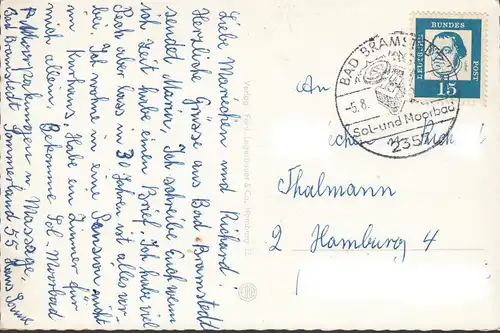 Liebe Mariechen und Richard!
Herzliche Grüsse aus Bad-Bramstedt
sendet Maria, Ich schreibe Euch wenn
ich Zeit habe einen Brief. Ich habe viel
Pech aber lass in 30 Jahren ist alles vor-
bei. Ich wohne in eine Pension nicht
im Kurhaus. Habe ein Zimmer für
mich allein, Bekomme Sol-Moorbad
Moorpakungen u. Massage.
Bad Bramstedt Sommerland 55 Haus
Verlag Ferd. Lagerbauer & Co., Hamburg
BAD BRAMSTEDT
-5.8.
Sol- und Moorbad
2357
DEUTSCHE BUNDESPOST
15
An
Thalmann
2 Hamburg 4